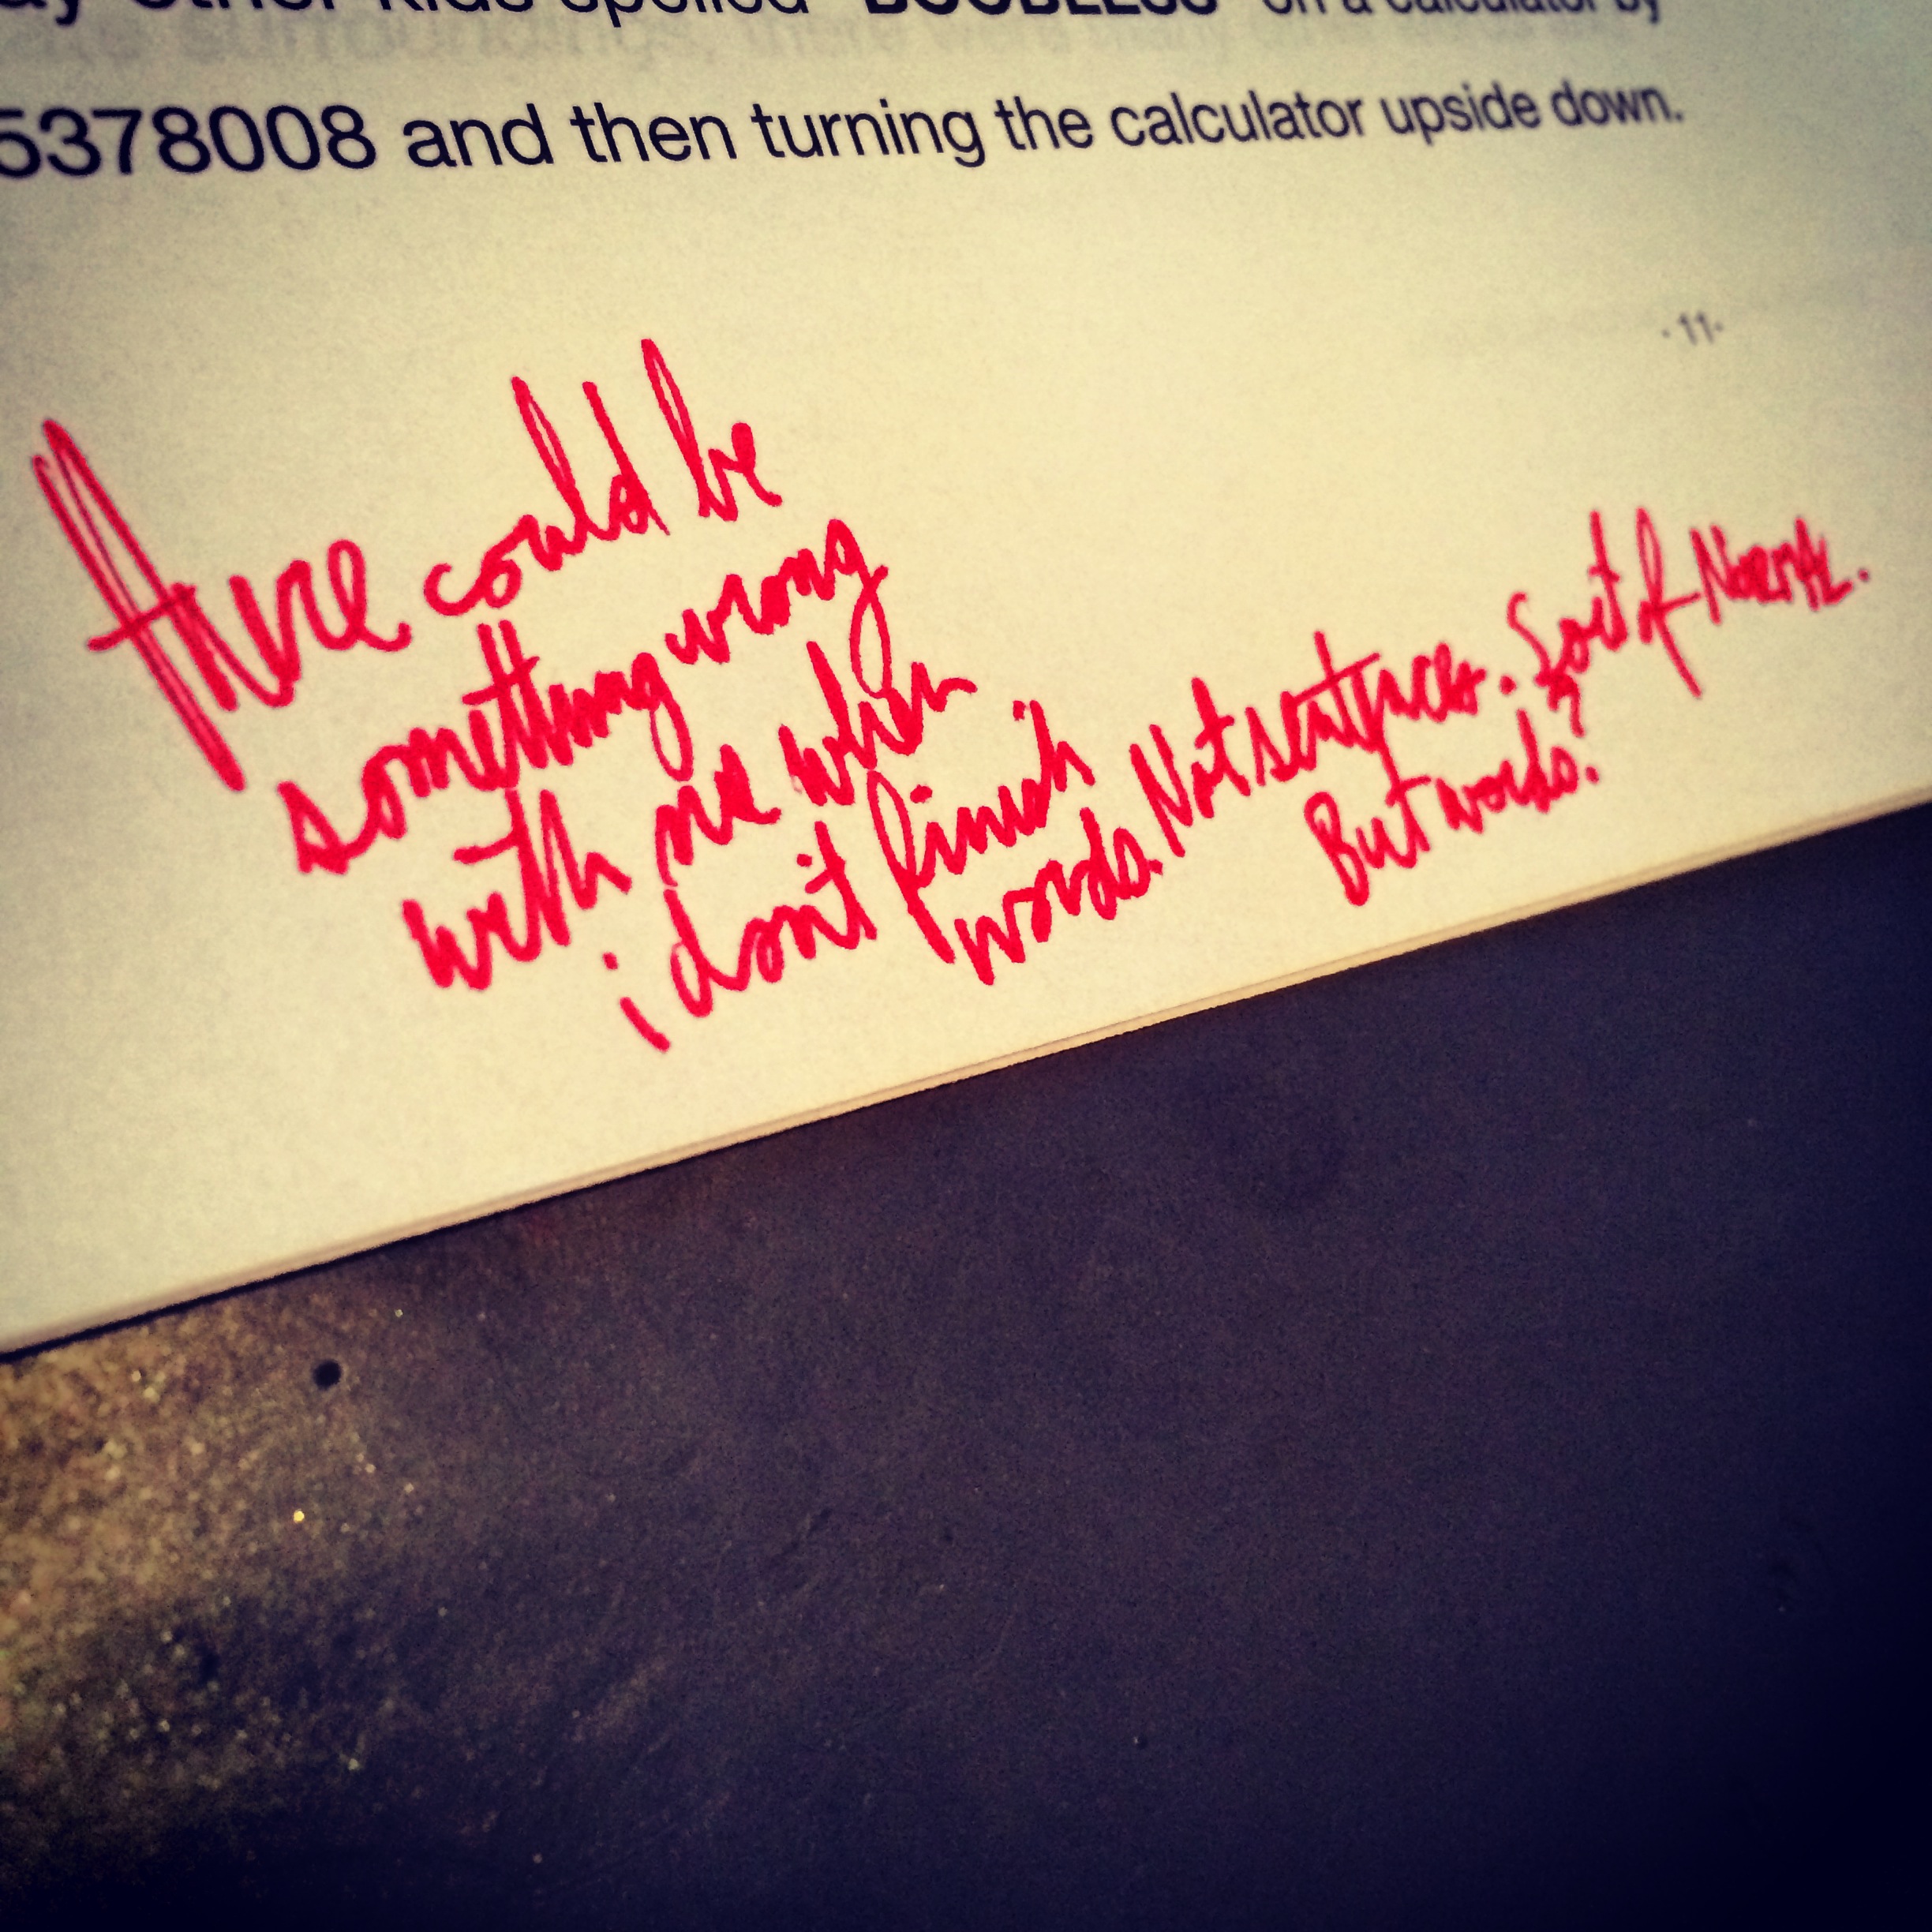 ay other kids spelled "BOOBLESS" on a calculator by
5378008 and then turning the calculator upside down.
·11·
there could be
something wrong
with me when
i don't finish
words. Not sentences. Sort of Normal.
But words?